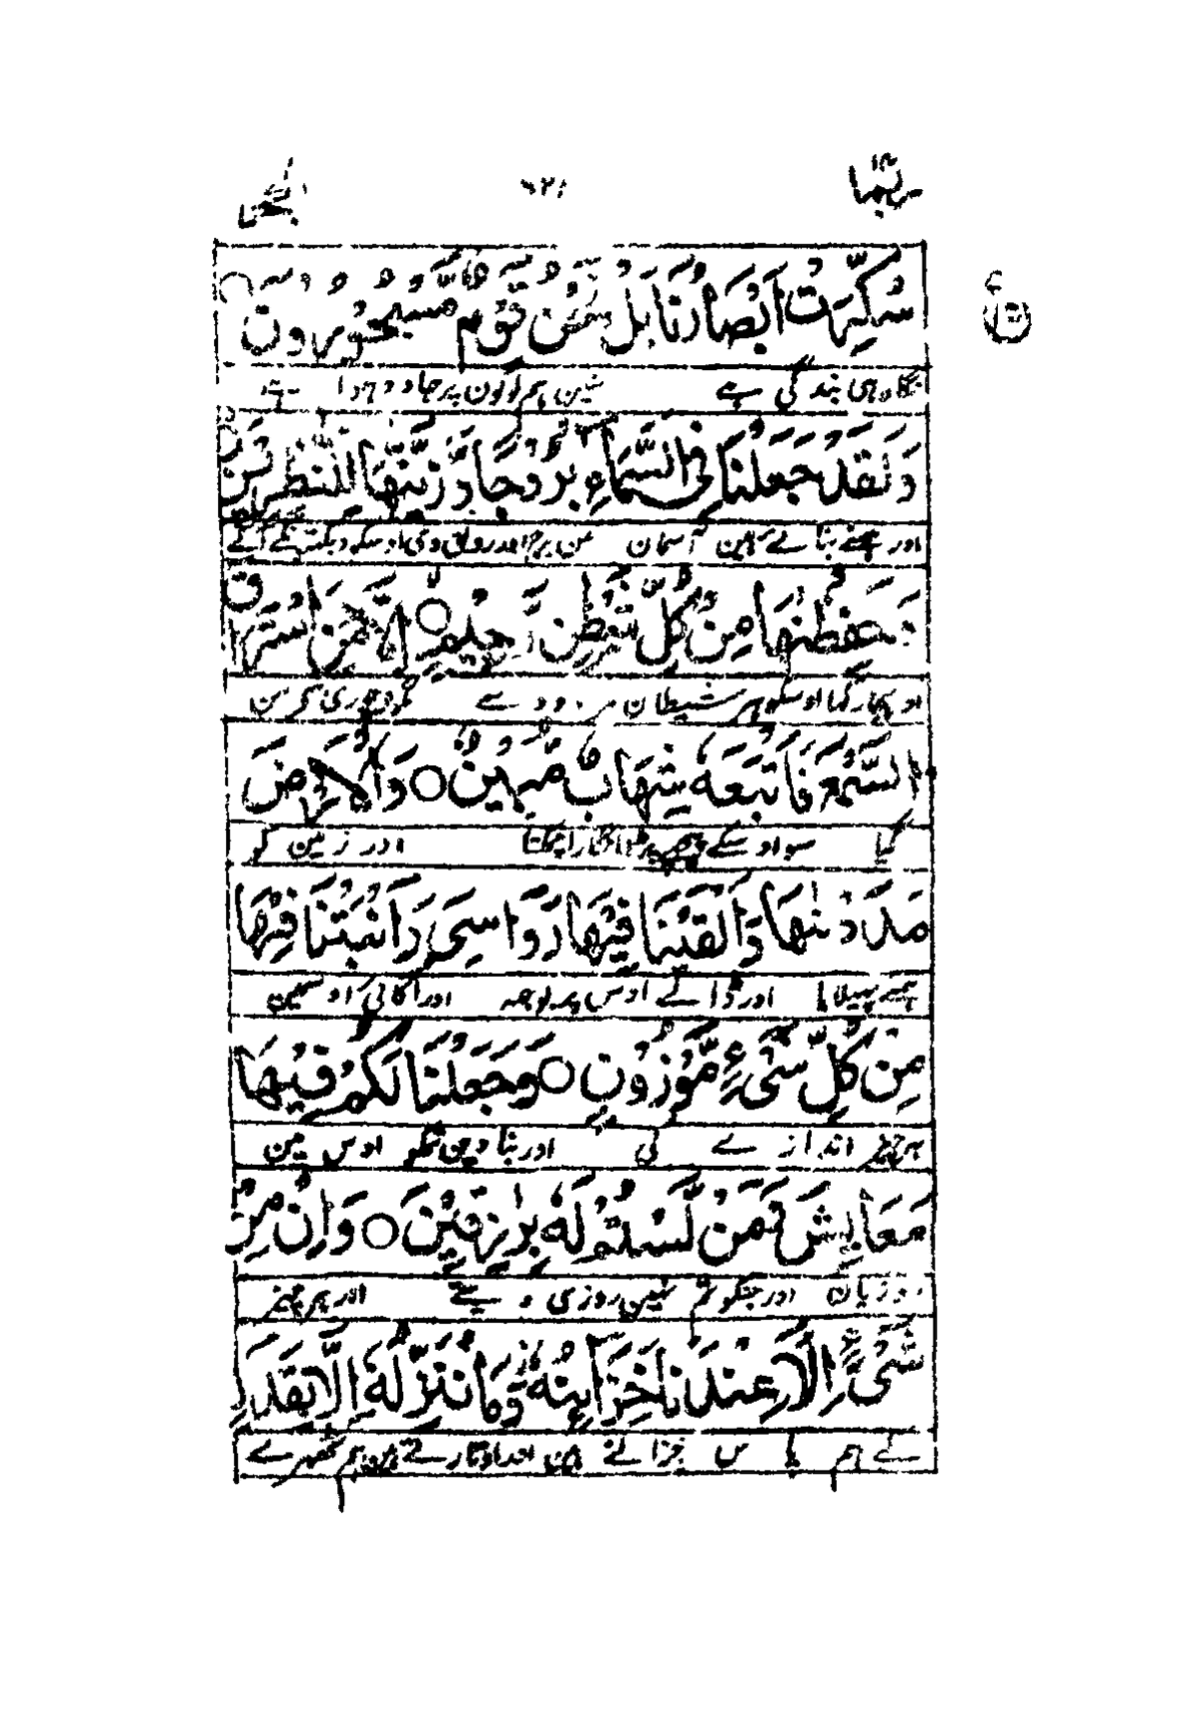 ربما ۱۴ ۶۲۱ الحجر
سُكِّرَتْ اَبْصَارُنَا بَلْ نَحْنُ قَوْمٌ مَّسْحُوْرُوْنَ
نگاہ ہی بند کی ہے نہیں ہم لوگون پر جادو ہوا ہے
وَلَقَدْ جَعَلْنَا فِی السَّمَآءِ بُرُوْجًا وَّزَیَّنّٰهَا لِلنّٰظِرِیْنَ
اور ہمنے بنائے ہین آسمان مین برج اور رونق دی اوسکو دیکھتونکے آگے
وَحَفِظْنٰهَا مِنْ كُلِّ شَیْطٰنٍ رَّجِیْمٍ ○ اِلَّا مَنِ اسْتَرَقَ
اور بچا رکھا اوسکو ہر شیطان مردود سے مگر جو چوری سے سن
السَّمْعَ فَاَتْبَعَهٗ شِهَابٌ مُّبِیْنٌ ○ وَالْاَرْضَ
گیا سو اوسکے پیچھے پڑا انگارا چمکتا اور زمین کو
مَدَدْنٰهَا وَاَلْقَیْنَا فِیْهَا رَوَاسِیَ وَاَنْبَتْنَا فِیْهَا
ہمنے پھیلایا اور ڈالے اوس پر بوجھ اور اگائی اوسمین
مِنْ كُلِّ شَیْءٍ مَّوْزُوْنٍ ○ وَجَعَلْنَا لَكُمْ فِیْهَا
ہر چیز اندازے کی اور بنا دین تمکو اوس مین
مَعَایِشَ وَمَنْ لَّسْتُمْ لَهٗ بِرٰزِقِیْنَ ○ وَاِنْ مِّنْ
روزیان اور جنکو تم نہین روزی دیتے اور ہر چیز
شَیْءٍ اِلَّا عِنْدَنَا خَزَآئِنُهٗ وَمَا نُنَزِّلُهٗ اِلَّا بِقَدَرٍ
کے ہم پاس خزانے ہین اور اوتارتے ہین ہم ٹھہرے